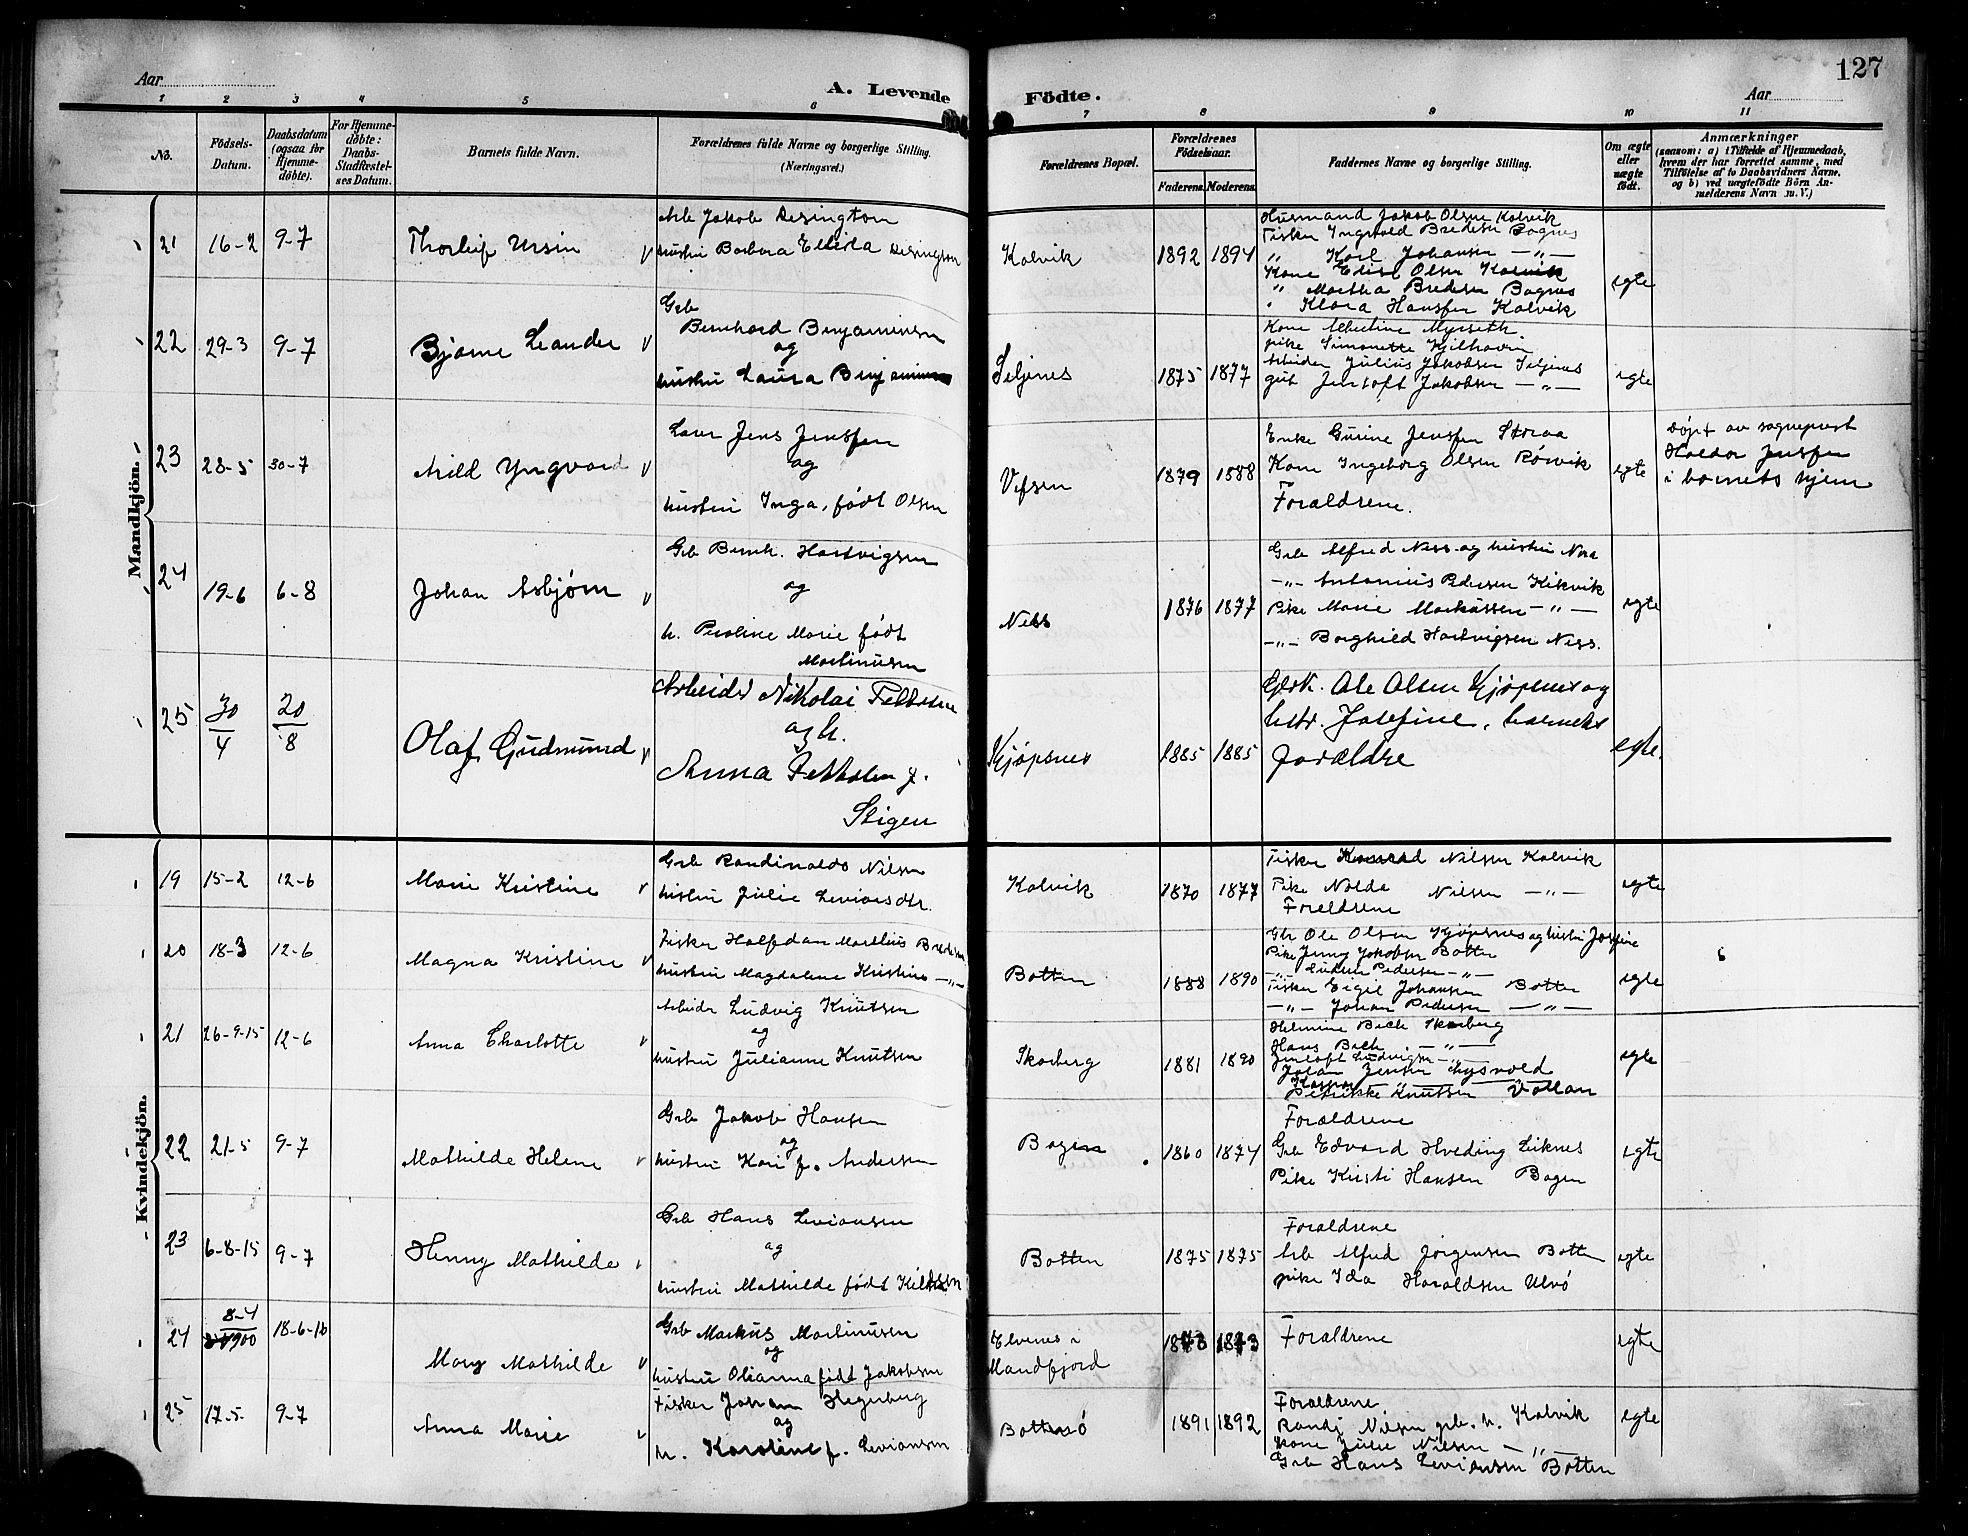 127
Aar
A. Levende Födte.
Aar
1 2 3 4 5 6 7 8 9 10 11
No.
Födsels-Datum.
Daabsdatum (ogsaa for Hjemme-döbte).
For Hjemme-döbte: Daabs-Stadfæstel-ses Datum.
Barnets fulde Navn.
Forældrenes fulde Navne og borgerlige Stilling.
(Næringsvei.)
Forældrenes Bopæl.
Forældrenes Födselsaar.
Faderens. Moderens.
Faddernes Navne og borgerlige Stilling.
Om ægte eller uægte födt.
Anmærkninger
(saasom: a) i Tilfælde af Hjemmedaab,
hvem der har forrettet samme, med
Tilföielse af to Daabsvidners Navne,
og b) ved uægtefödte Börn An-
melderens Navn m. V.)
Mandkjön.
21 16-2 9-7 Thorleif Ursin
Arb Jakob Desington
hustru Barbara Elida Desington
Kalvik 1892 1894
Husmand Jakob Olsen Kalvik
Fisker Ingvald Bredesen Bognes
" Karl Johansen -"-
Kone Elise Olsen Kalvik
" Martha Bredesen Bognes
" Klara Hansen Kalvik
egte
22 29-3 9-7 Bjarne Leander
Grb
Bernhard Benjaminsen
og
hustru Laura Benjaminsen
Seljenes 1875 1877
Kone Albertine Myrseth
pike Simonette
Arbeider Julius Jakobsen Seljenes
gut Jentoft Jakobsen -"-
egte
23 28-5 30-7 Arild Yngvard
Lærer Jens Jensen
og
hustru Inga, født Olsen
Vefsen 1879 1888
Enke Gurine Jensen Storaa
Kone Ingeborg Olsen Rørvik
Foreldrene.
egte
døpt av sogneprest
Haldor Jensen
i barnets hjem
24 19-6 6-8 Johan Asbjørn
Grb Bernh. Hartvigsen
og
h. Peroline Marie født
Martinusen
Ness 1876 1877
Grb Alfred Ness og hustru Nora
-"- Antonius Pedersen Kikvik
Pike Marie Markussen -"-
-"- Borghild Hartvigsen Ness.
egte
25 30/4 20/8 Olaf Gudmund
Arbeider Nikolai
og h.
Anna f.
Stigen
Kjøpsnes 1885 1885
Gbr. Ole Olsen Kjøpsnes og
hstr. Josefine, barnets
forældre
egte.
Kvindekjön.
19 15-2 12-6 Marie Kristine
Grb Randinaldo Nilsen
hustru Julie Leviaesdtr.
Kalvik 1870 1877
Fisker Konrad Nilsen Kalvik
Pike Nolda Nilsen -"-
Foreldrene
egte
20 18-3 12-6 Magna Kristine
Fisker Halfdan Marelius Bredesen
hustru Magdalene Kristine -"-
Botten 1888 1890
Gbr Ole Olsen Kjøpsnes og hustru Josefine
Pike Jenny Jakobsen Botten
-"- Pedersen -"-
Fisker Eigil Johansen Botten
-"- Johan Pedersen -"-
egte
21 26-9-15 12-6 Anna Charlotte
Arbeider Ludvig Knutsen
og
hustru Julianne Knutsen
Skarberg 1881 1890
Helmine Bech Skarberg
Hans Bech -"-
Jentoft Ludvigsen -"-
Johan Jensen Lysvold
Petrikke Knutsen Vollan
egte
22 21-5 9-7 Mathilde Helene
Grb Jakob Hansen
og
hustru Kari f. Andersen
Bogen 1860 1874
Foreldrene
Grb Edvard Hveding Liknes
Pike Kirsti Hansen Bogen
egte
23 6-8-15 9-7 Henny Mathilde
Grb Hans Leviansen
og
hustru Mathilde født
Botten 1875 1875
Foreldrene
Arb Alfred Jørgensen Botten
pike Ida Haraldsen Ulvø
egte
24 8-4 1900 18-6-16 Mary Mathilde
Grb Markus Martinusen
og
hustru Olianna født Jakobsen
Elvenes i
Mandfjord 1873 1873
Foreldrene
egte
25 17-5- 9-7 Anna Marie
Fisker Johan Hegerberg
og
h. Karoline f. Leviansen
Botnsø 1891 1892
Foreldrene
Randi Nilsen grb. h. Kalvik
Kone Julie Nilsen -"-
Grb Hans Leviansen Botten
egte